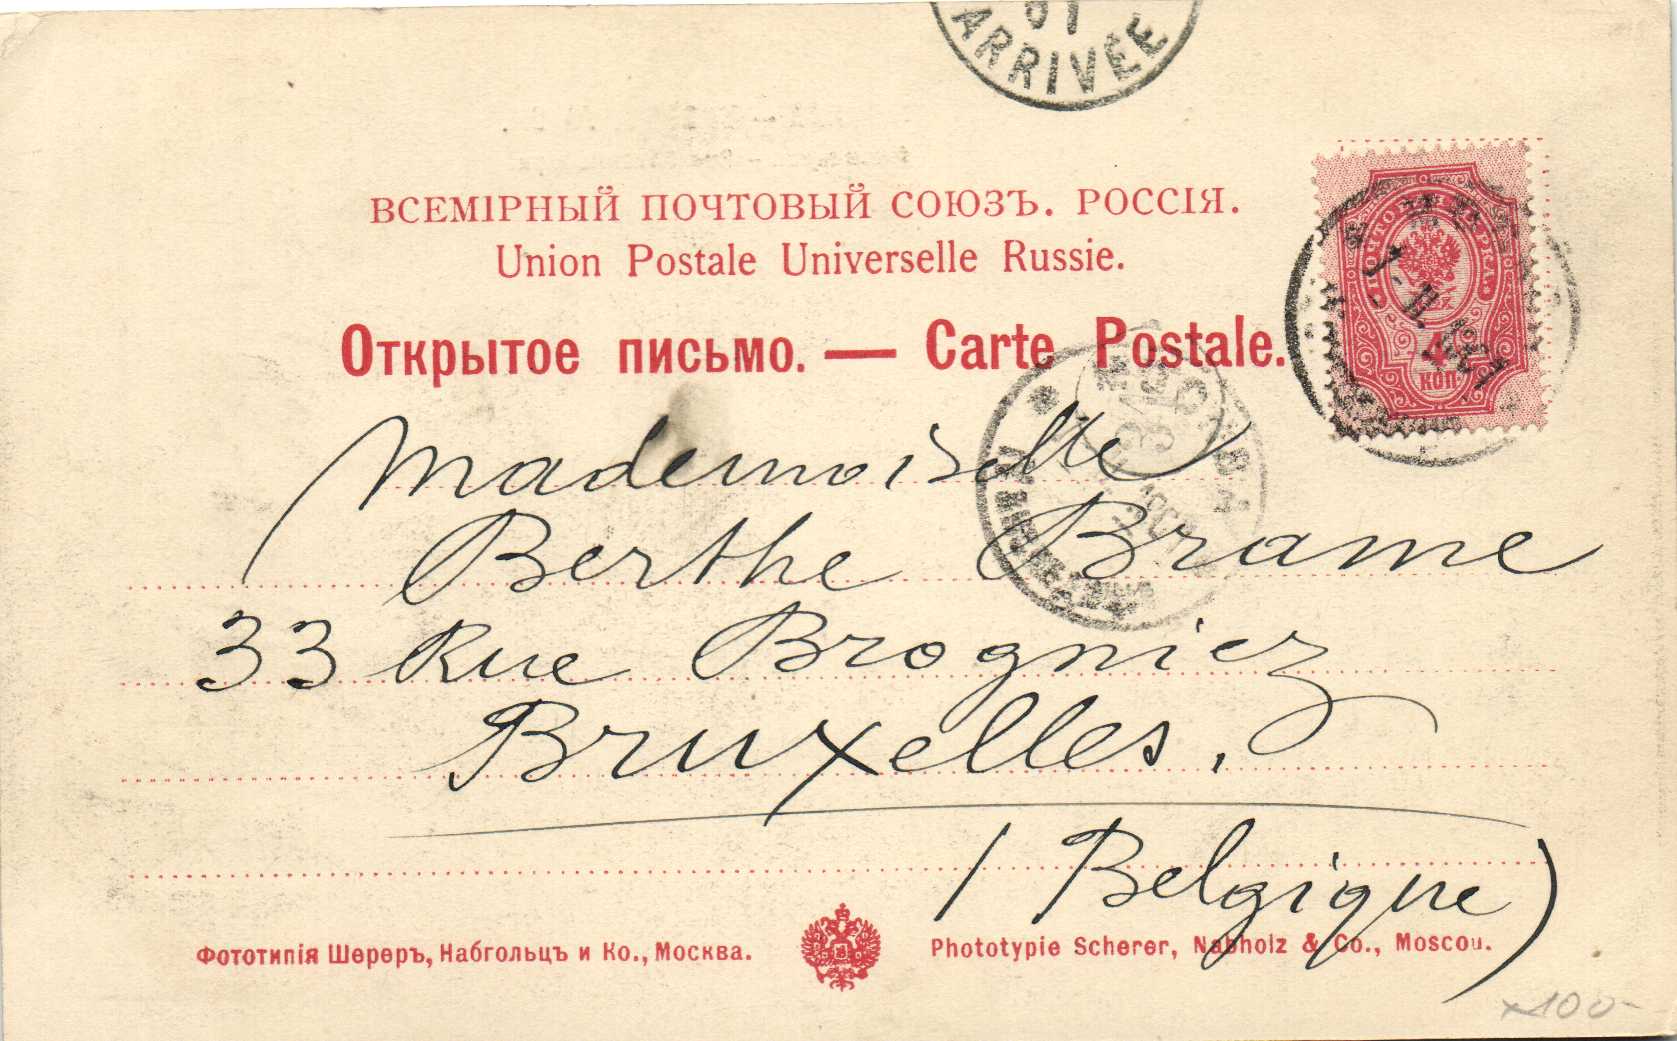 01
ARRIVÉE
ВСЕМІРНЫЙ ПОЧТОВЫЙ СОЮЗЪ. РОССІЯ.
Union Postale Universelle Russie.
Открытое письмо. — Carte Postale.
ПОЧТОВАЯ МАРКА
4
КОП.
1901
МОСКВА
Mademoiselle
Berthe Brame
33 Rue Brogniez
Bruxelles.
(Belgique)
Фототипія Шереръ, Набгольцъ и Ко., Москва.
Phototypie Scherer, Nabholz & Co., Moscou.
100-